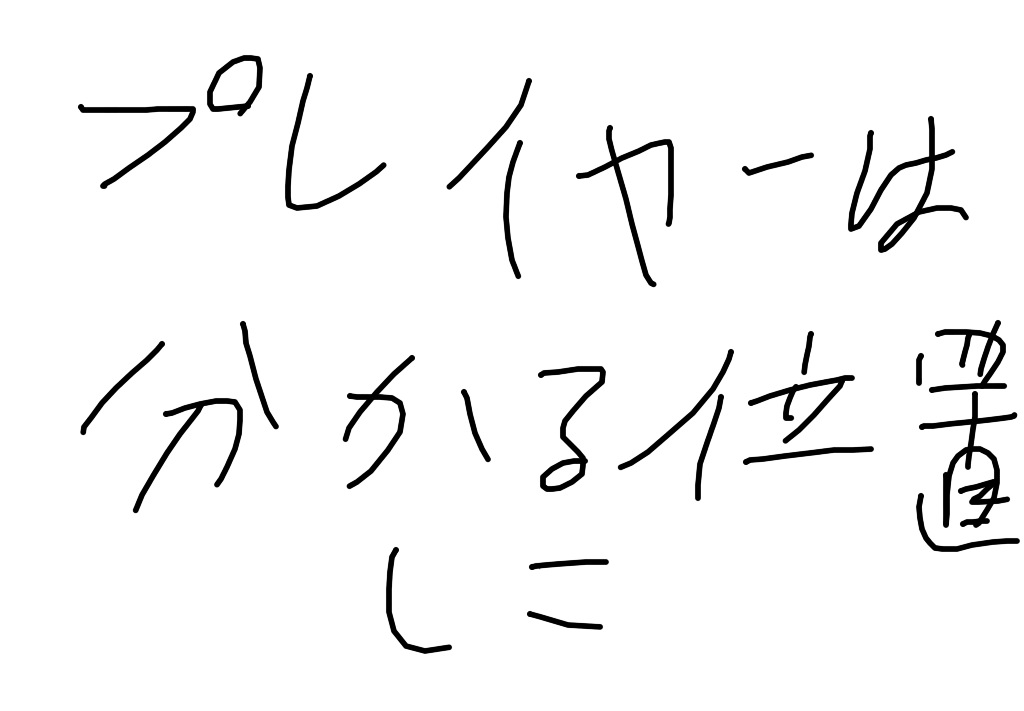 プレイヤーは
分かる位置
に